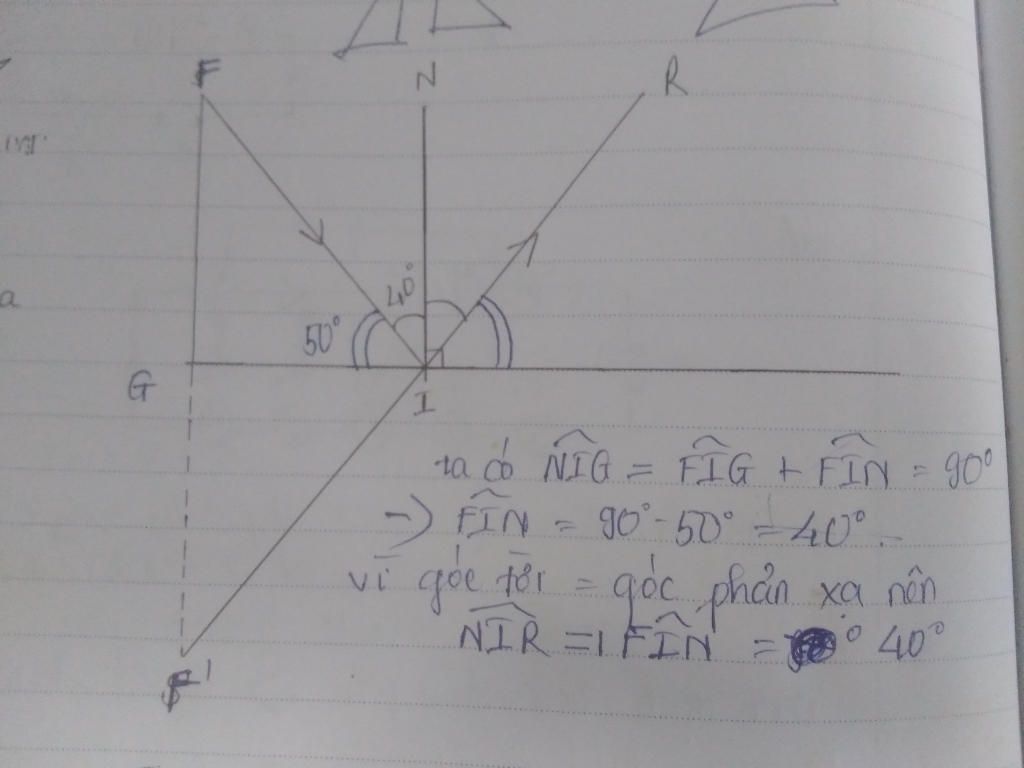 F N R
40°
50°
G
I
ta có NIG = FIG + FIN = 90°
=> FIN = 90° - 50° = 40°
vì góc tới = góc phản xạ nên
NIR = FIN = 40°
F'